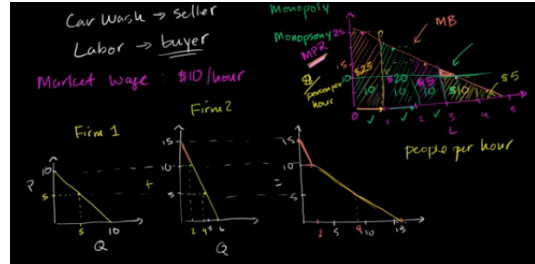 Car Wash → seller
Labor → buyer
Market Wage : $10/hour
Monopoly
Monopsony
MPR
$
person per hour
MB
25
15
10
0 1 2 3 4 5
L
$25
$20
$5
10 10 10 $10
$5
people per hour
Firm 1
10
P
5
5 10
Q
+
Firm 2
15
10
5
2 4 5 6
Q
=
15
10
5
2 5 9 10 15